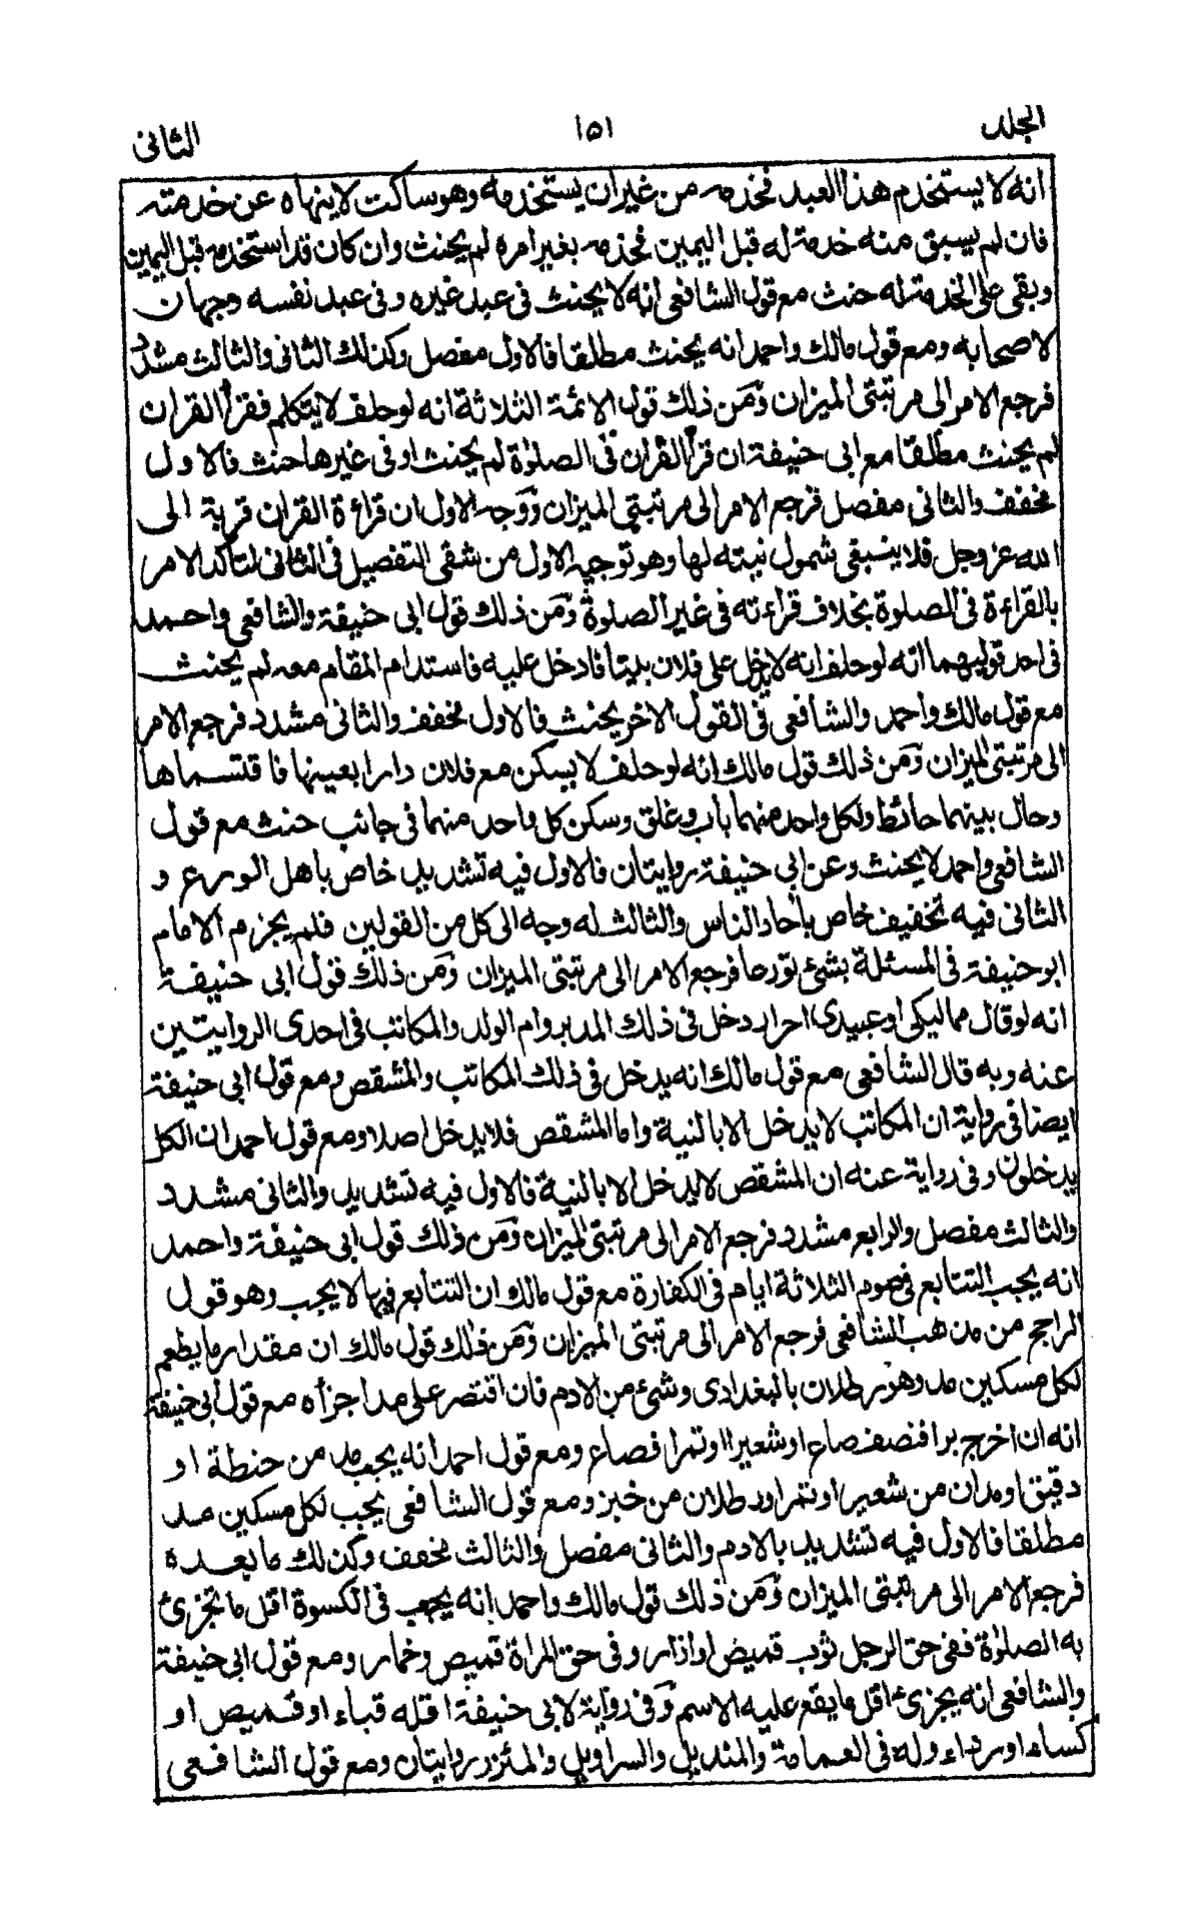 الجلد ١٥١ الثانى
انه لا يستخدم هذا العبد فخدمه من غيران يستخدمه وهو ساكت لا ينهاه عن خدمته
فان لم يسبق منه خدمة له قبل اليمين فخدمه بغير امره لم يحنث وان كان قد استخدمه قبل اليمين
وبقى على الخدمة له حنث مع قول الشافعى انه لا يحنث فى عبد غيره وفى عبد نفسه وجهان
لاصحابه ومع قول مالك واحمد انه يحنث مطلقا فالاول مفصل وكذلك الثانى والثالث مشدد
فرجع الامر الى مرتبتى الميزان ومن ذلك قول الائمة الثلاثة انه لو حلف لا يتكلم فقرأ القران
لم يحنث مطلقا مع ابى حنيفة ان قرأ القران فى الصلوٰة لم يحنث او فى غيرها حنث فالاول
مخفف والثانى مفصل فرجع الامر الى مرتبتى الميزان ووجه الاول ان قراءة القران قربة الى
الله عز وجل فلا ينبغى شمول نيته لها وهو توجيه الاول من شقى التفصيل فى الثانى لتأكد الامر
بالقراءة فى الصلوة بخلاف قراءته فى غير الصلوة ومن ذلك قول ابى حنيفة والشافعى واحمد
فى احد قوليهما انه لو حلف انه لا يدخل على فلان بيتا فادخل عليه فاستدام المقام معه لم يحنث
مع قول مالك واحمد والشافعى فى القول الاخر يحنث فالاول مخفف والثانى مشدد فرجع الامر
الى مرتبتى الميزان ومن ذلك قول مالك انه لو حلف لا يسكن مع فلان دارا بعينها فاقتسماها
وحال بينهما حائط ولكل واحد منهما باب وغلق وسكن كل واحد منهما فى جانب حنث مع قول
الشافعى واحمد لا يحنث وعن ابى حنيفة روايتان فالاول فيه تشديد خاص باهل الورع و
الثانى فيه تخفيف خاص باحاد الناس والثالث له وجه الى كل من القولين فلم يجزم الامام
ابو حنيفة فى المسئلة بشئ تورعا فرجع الامر الى مرتبتى الميزان ومن ذلك قول ابى حنيفة
انه لو قال مماليكى او عبيدى احرار دخل فى ذلك المدبر وام الولد والمكاتب فى احدى الروايتين
عنه وبه قال الشافعى مع قول مالك انه يدخل فى ذلك المكاتب والمشقص ومع قول ابى حنيفة
ايضا فى رواية ان المكاتب لا يدخل الا بالنية واما المشقص فلا يدخل اصلا ومع قول احمد ان الكل
يدخلون وفى رواية عنه ان المشقص لا يدخل الا بالنية فالاول فيه تشديد والثانى مشدد
والثالث مفصل والرابع مشدد فرجع الامر الى مرتبتى الميزان ومن ذلك قول ابى حنيفة واحمد
انه يجب التتابع فى صوم الثلاثة ايام فى الكفارة مع قول مالك ان التتابع فيها لا يجب وهو قول
الراجح من مذهب الشافعى فرجع الامر الى مرتبتى الميزان ومن ذلك قول مالك ان مقدار ما يطعم
لكل مسكين مد وهو رطلان بالبغدادى وشئ من الادم فان اقتصر على مد اجزأه مع قول ابى حنيفة
انه ان اخرج برا فنصف صاع او شعيرا او تمرا فصاع ومع قول احمد انه يجب مد من حنطة او
دقيق او مدان من شعير او تمر او رطلان من خبز ومع قول الشافعى يجب لكل مسكين مد
مطلقا فالاول فيه تشديد بالادم والثانى مفصل والثالث مخفف وكذلك ما بعده
فرجع الامر الى مرتبتى الميزان ومن ذلك قول مالك واحمد انه يجب فى الكسوة اقل ما تجزئ
به الصلوٰة ففى حق الرجل ثوب قميص او ازار وفى حق المراة قميص وخمار ومع قول ابى حنيفة
والشافعى انه يجزئ اقل ما يقع عليه الاسم وفى رواية لابى حنيفة اقله قباء او قميص او
كساء او رداء وله فى العمامة والمنديل والسراويل والمئزر روايتان ومع قول الشافعى